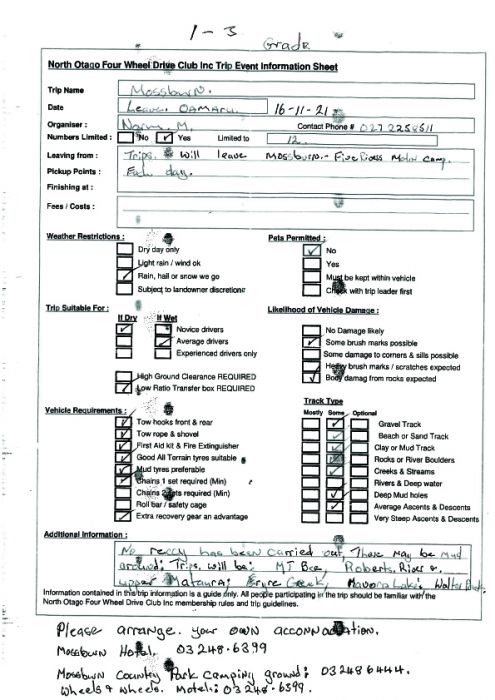 1 - 3
Grade
North Otago Four Wheel Drive Club Inc Trip Event Information Sheet
Trip Name Mossburn.
Date Leave OAMARU 16-11-21
Organiser : Norm M. Contact Phone # 027 2258511
Numbers Limited : No Yes Limited to 12
Leaving from : Trips will leave Mossburn - Five Rivers Motor Camp.
Pickup Points : Each day.
Finishing at :
Fees / Costs :
Weather Restrictions : Pets Permitted :
Dry day only No
Light rain / wind ok Yes
Rain, hail or snow we go Must be kept within vehicle
Subject to landowner discretions Check with trip leader first
Trip Suitable For : Likelihood of Vehicle Damage :
If Dry If Wet No Damage likely
Novice drivers Some brush marks possible
Average drivers Some damage to corners & sills possible
Experienced drivers only Heavy brush marks / scratches expected
High Ground Clearance REQUIRED Body damag from rocks expected
Low Ratio Transfer box REQUIRED
Track Type
Vehicle Requirements : Mostly Some Optional
Tow hooks front & rear Gravel Track
Tow rope & shovel Beach or Sand Track
First Aid kit & Fire Extinguisher Clay or Mud Track
Good All Terrain tyres suitable Rocks or River Boulders
Mud tyres preferable Creeks & Streams
Chains 1 set required (Min) Rivers & Deep water
Chains 2 sets required (Min) Deep Mud holes
Roll bar / safety cage Average Ascents & Descents
Extra recovery gear an advantage Very Steep Ascents & Descents
Additional Information :
No reccy has been carried out, There may be mud
around. Trips will be: MT Bee, Roberts River &
upper Mataura, Eyre Creek, Mavora Lakes Walter Peak
Information contained in this trip information is a guide only. All people participating in the trip should be familiar with the
North Otago Four Wheel Drive Club Inc membership rules and trip guidelines.
Please arrange your own accommodation.
Mossburn Hotel. 03 248-6399
Mossburn Country Park camping ground: 03 248 6444.
Wheels & wheels. Motel: 03 248-6399.